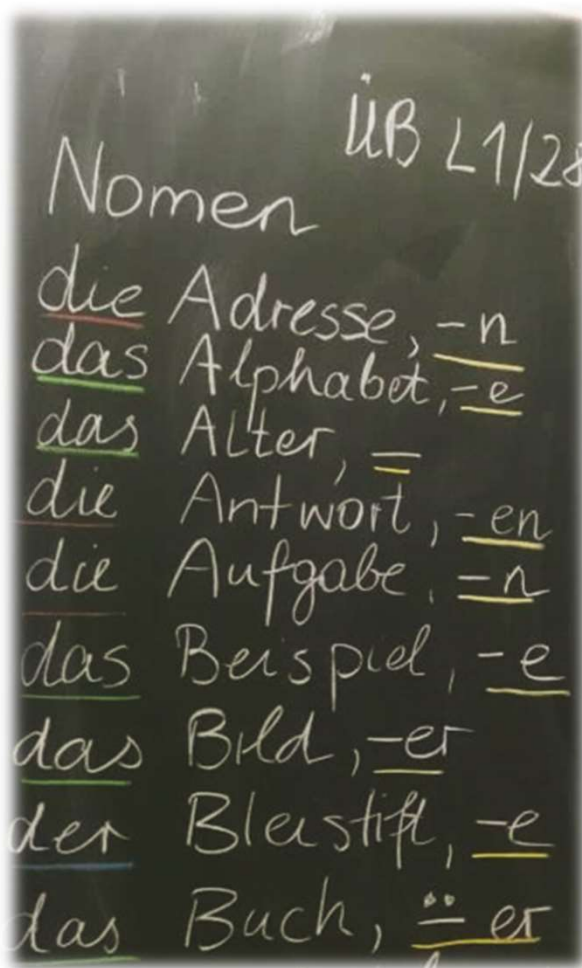 ÜB L1/28
Nomen
die Adresse, -n
das Alphabet, -e
das Alter, -
die Antwort, -en
die Aufgabe, -n
das Beispiel, -e
das Bild, -er
der Bleistift, -e
das Buch, ¨-er